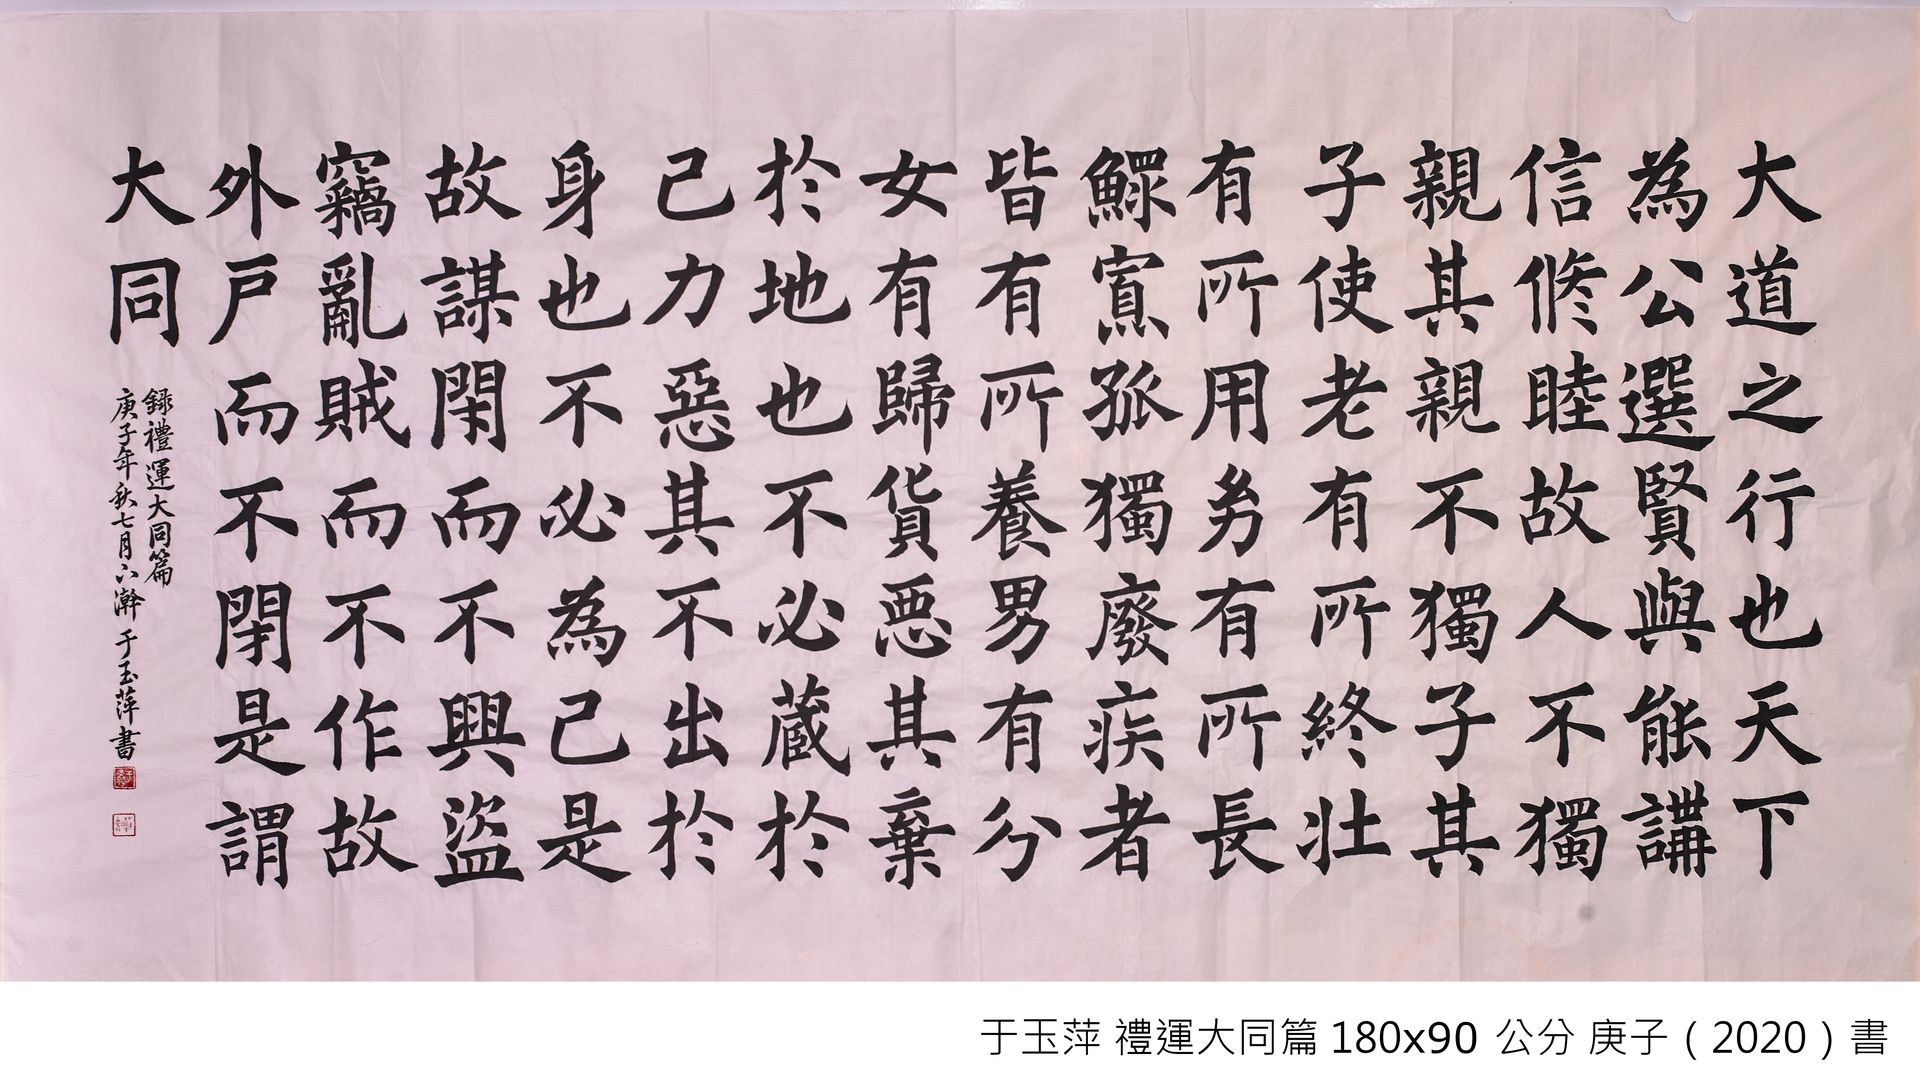 大道之行也天下
為公選賢與能講
信修睦故人不獨
親其親不獨子其
子使老有所終壯
有所用幼有所長
鰥寡孤獨廢疾者
皆有所養男有分
女有歸貨悪其棄
於地也不必藏於
己力惡其不出於
身也不必為己是
故謀閉而不興盜
竊亂賊而不作故
外戶而不閉是謂
大同
錄禮運大同篇
庚子年秋七月下澣 于玉萍書
于玉萍 禮運大同篇 180x90 公分 庚子（2020）書